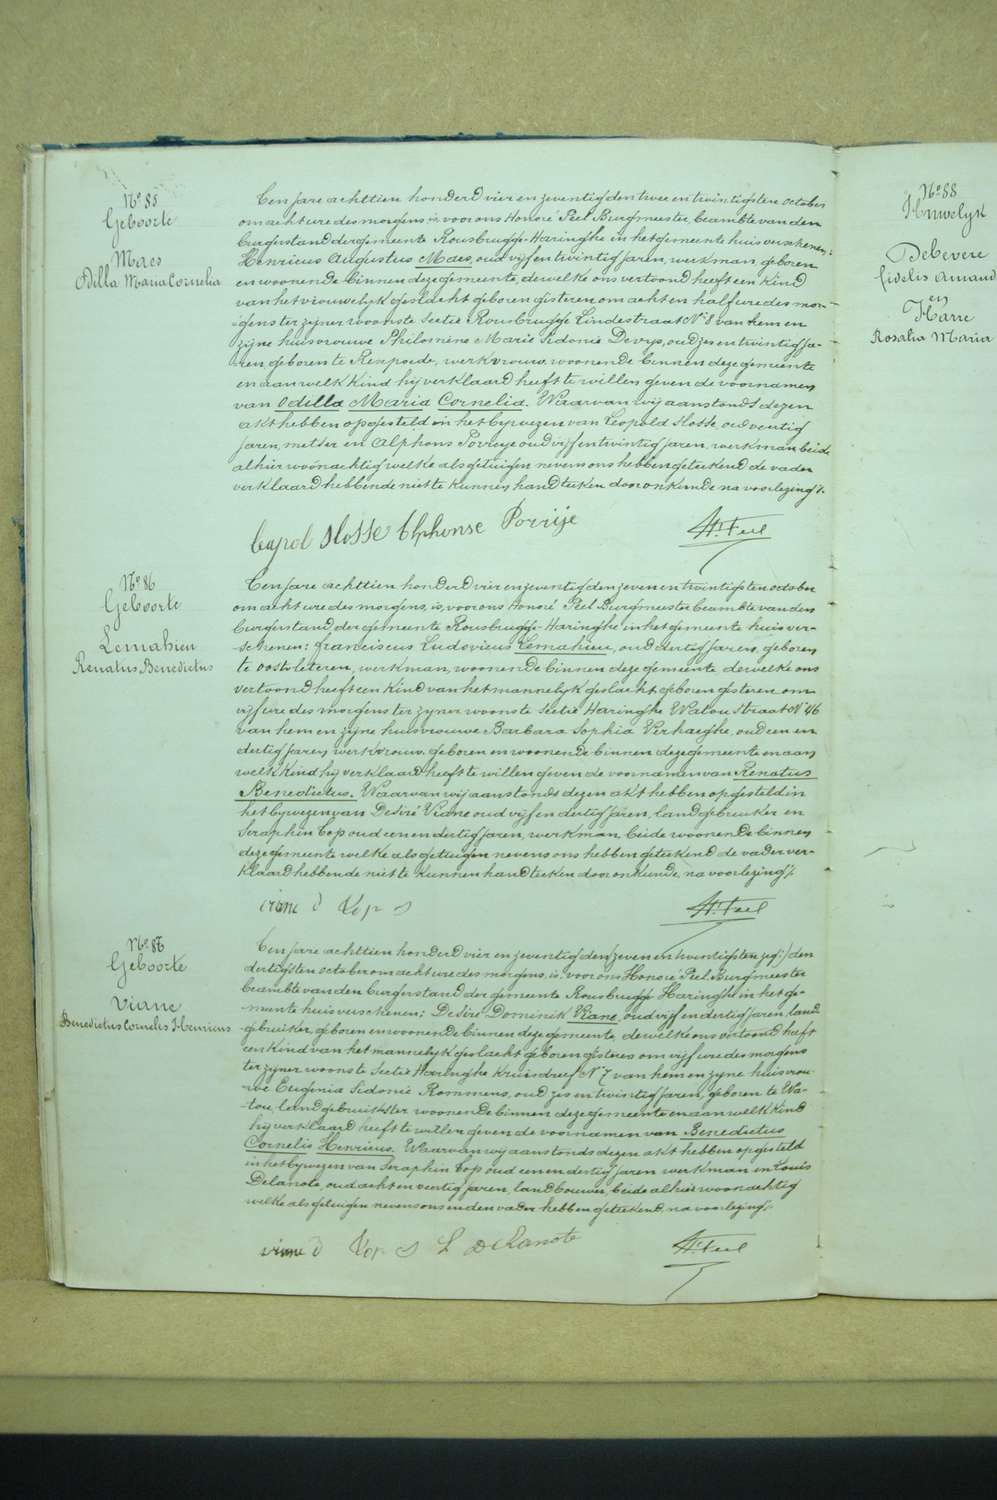 No 85
Geboorte
Maes
Odilla Maria Cornelia
Ten jare achttien honderd vier en zeventig den twee en twintigsten october
om acht ure des morgens, is, voor ons Honoré Peel Burgmeester beambte van den
burgerstand der gemeente Rousbrugge-Haringhe in het gemeente huis verschenen:
Henricus Augustus Maes, oud vijf en twintig jaren, werkman, geboren
en woonende binnen deze gemeente, dewelke ons vertoond heeft een kind
van het vrouwelijk geslacht geboren gisteren om acht en half ure des mor-
gens ter zijner woonste sectie Rousbrugge Lindestraat No 8 van hem en
zijne huisvrouwe Philomene Marie Sidonie Devys, oud zes en twintig ja-
ren geboren te Rexpoede, werkvrouw, woonende binnen deze gemeente
en aan welk kind hij verklaard heeft te willen geven de voornamen
van Odilla Maria Cornelia. Waarvan wij aanstonds dezen
akt hebben opgesteld in het bywezen van Leopold Hosse, oud veertig
jaren, metser en Alphons Povreye oud vijf en twintig jaren, werkman beide
alhier woonachtig welke als getuigen nevens ons hebben geteekend de vader
verklaard hebbende niet te kunnen handteeken door onkunde na voorlezing
Leopol Hosse Alphonse Porrije
H. Peel
No 86
Geboorte
Lemahieu
Renatus Benedictus
Ten jare achttien honderd vier en zeventig den zeven en twintigsten october
om acht ure des morgens, is, voor ons Honoré Peel Burgmeester beambte van den
burgerstand der gemeente Rousbrugge-Haringhe in het gemeente huis ver-
schenen: franciscus Ludovicus Lemahieu, oud dertig jaren, geboren
te Oostvleteren, werkman, woonende binnen deze gemeente dewelke ons
vertoond heeft een kind van het mannelyk geslacht geboren gisteren om
vijf ure des morgens ter zyner woonste sectie Haringhe Watou straat No 46
van hem en zyne huisvrouwe Barbara Sophia Verhaeghe, oud een en
dertig jaren, werkvrouw, geboren en woonende binnen deze gemeente en aan
welk kind hij verklaard heeft te willen geven de voornamen van Renatus
Benedictus. Waarvan wij aanstonds dezen akt hebben opgesteld in
het bywezen van Desiré Viane oud vijf en dertig jaren, landgebruiker en
Seraphin Cop oud een en dertig jaren, werkman, beide woonende binnen
deze gemeente welke als getuigen nevens ons hebben geteekend de vader ver-
klaard hebbende niet te kunnen handteeken door onkunde, na voorlezing
viane d Kop s
H. Peel
No 87
Geboorte
Viane
Benedictus Cornelis Henricus
Ten jare achttien honderd vier en zeventig den zeven en twintigsten zeg:/den
dertigsten october om acht ure des morgens, is, voor ons Honoré Peel Burgmeester
beambte van den burgerstand der gemeente Rousbrugge Haringhe in het ge-
meente huis verschenen: Desire Dominik Viane, oud vijf en dertig jaren, land
gebruiker, geboren en woonende binnen deze gemeente, dewelke ons vertoond heeft
een kind van het mannelyk geslacht geboren gisteren om vijf ure des morgens
ter zyner woonste sectie Haringhe Kruisdreef No 7 van hem en zyne huisvrou-
we Eugenia Sidonie Rommens, oud zes en twintig jaren, geboren te Wa-
tou, landgebruikster woonende binnen deze gemeente en aan welk kind
hij verklaard heeft te willen geven de voornamen van Benedictus
Cornelis Henricus. Waarvan wij aanstonds dezen akt hebben opgesteld
in het bywezen van Seraphin Cop oud een en dertig jaren werkman en Louis
Delanote, oud acht en veertig jaren, landbouwer, beide alhier woonachtig
welke als getuigen nevens ons en den vader hebben geteekend, na voorlezing
viane d Kop s L Delanote
H. Peel
No 88
Huwelyk
Debevere
fidelis Amand
en
Harre
Rosalia Maria